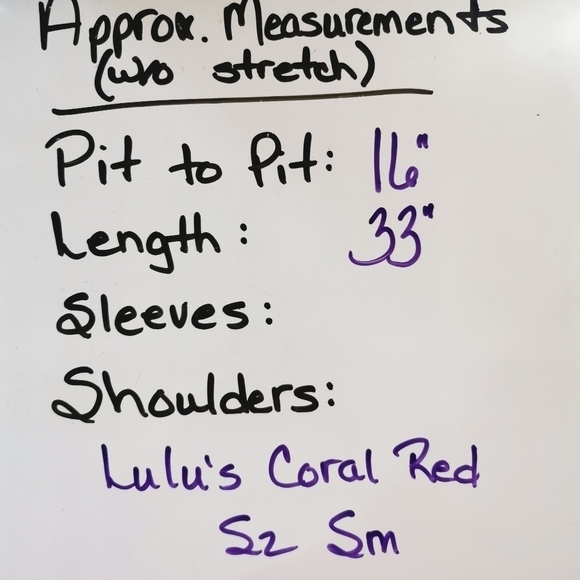 Approx. Measurements
(w/o stretch)
Pit to Pit: 16"
Length: 33"
Sleeves:
Shoulders:
Lulu's Coral Red
Sz Sm